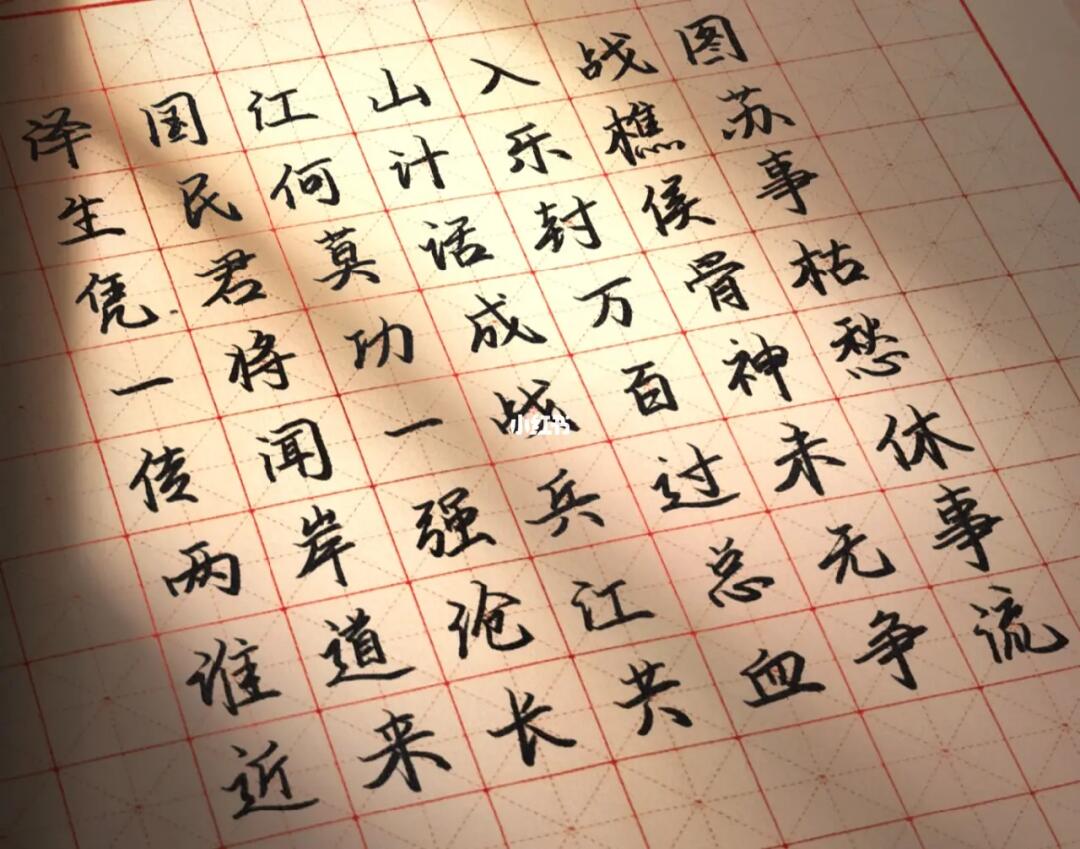 泽国江山入战图
生民何计乐樵苏
凭君莫话封侯事
一将功成万骨枯
传闻一战百神愁
小红书
两岸强兵过未休
谁道沧江总无事
近来长共血争流